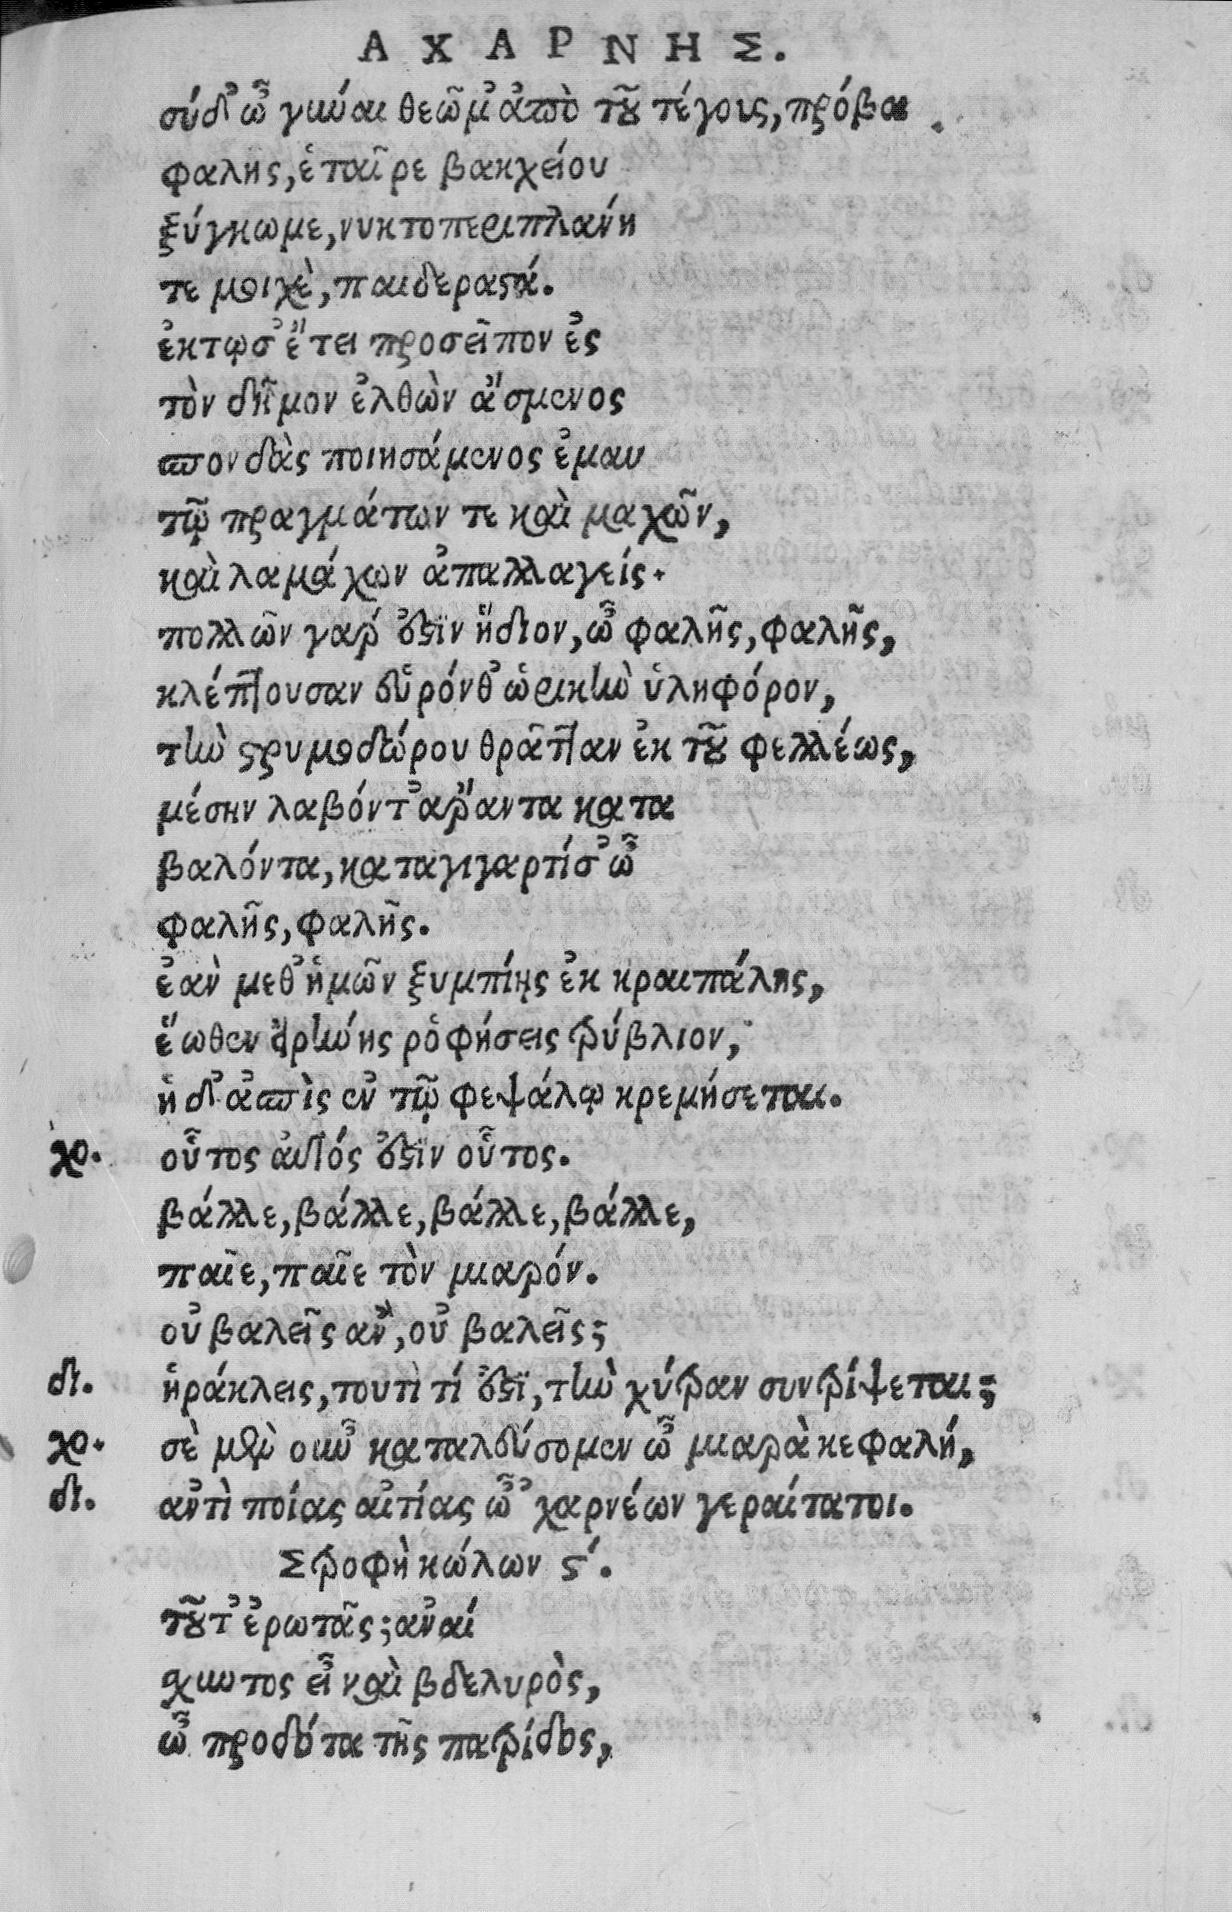 ΑΧΑΡΝΗΣ.
σύ δ' ὦ γύναι θεῶ μ' ἀπὸ τοῦ τέγους, πρόβα.
φαλης, ἑταῖρε βακχείου
ξύγκωμε, νυκτοπεριπλάνη
τε μοιχὲ, παιδεραστά.
ἑκτῳ σ' ἔτει προσεῖπον ἐς
τὸν δῆμον ἐλθὼν ἄσμενος
σπονδὰς ποιησάμενος ἐμαυ
τῷ πραγμάτων τε καὶ μαχῶν,
καὶ λαμάχων ἀπαλλαγείς.
πολλῶν γάρ ἐσϊν ἥδιον, ὦ φαλῆς, φαλῆς,
κλέπτουσαν εὑρόνθ' ὡρικὴν ὑληφόρον,
τὴν στρυμοδώρου θρᾶτταν ἐκ τοῦ φελλέως,
μέσην λαβόντ' ἄραντα κατα
βαλόντα, καταγιγαρτίσ' ὦ
φαλῆς, φαλῆς.
ἐὰν μεθ' ἡμῶν ξυμπίῃς ἐκ κραιπάλης,
ἕωθεν εἰρήνης ῥοφήσεις τρύβλιον,
ἡ δ' ἀσπὶς ἐν τῷ φεψάλῳ κρεμήσεται.
χο. οὗτος αὐτός ἐστϊν οὗτος.
βάλλε, βάλλε, βάλλε, βάλλε,
παῖε, παῖε τὸν μιαρόν.
οὐ βαλεῖς ἂν, οὐ βαλεῖς;
δι. ἡράκλεις, τουτὶ τί ἐστϊ, τὴν χύτραν συντρίψεται;
χο. σὲ μὲν οὖν καταλεύσομεν ὦ μιαρὰ κεφαλή,
δι. ἀντὶ ποίας αἰτίας ὦ 'χαρνέων γεραίτατοι.
Στροφὴ κώλων ϛ'.
τοῦτ' ἐρωτᾶς; ἀναί
σχυντος εἶ καὶ βδελυρὸς,
ὦ προδότα τῆς πατρίδος,